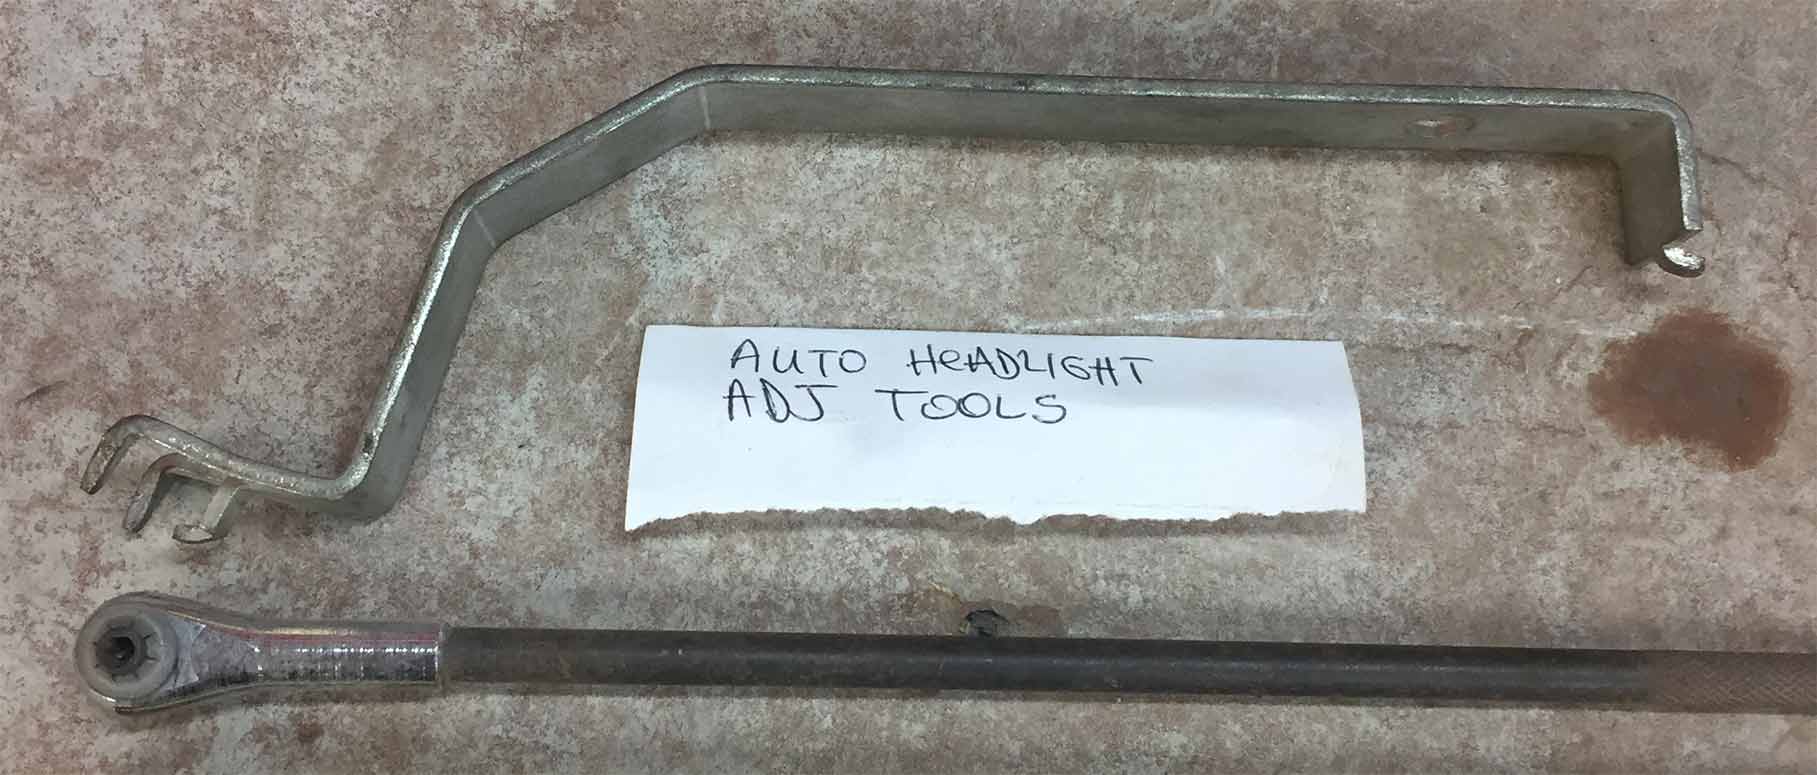 AUTO HeADLIGHT
ADJ TOOLS